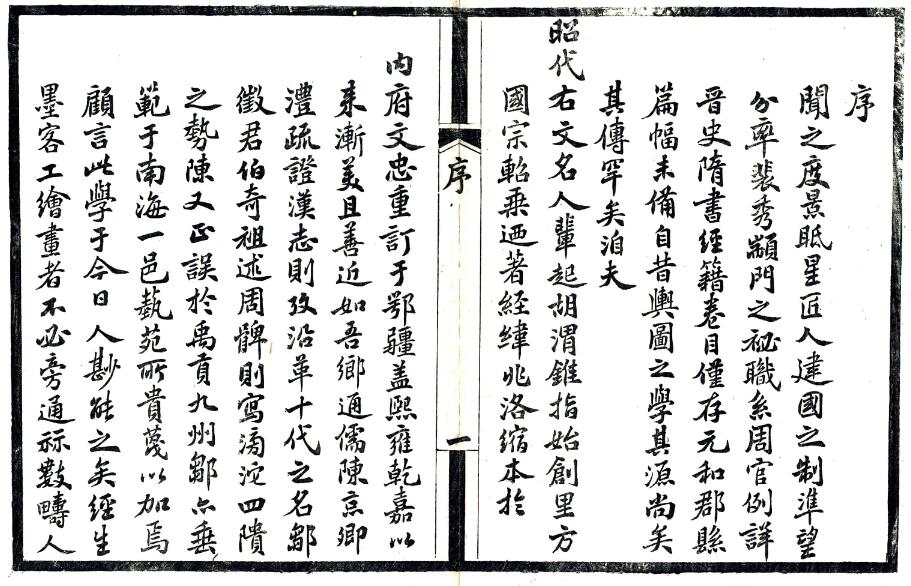 序
聞之度景眡星匠人建國之制準望
分率裴秀顓門之祕職系周官例詳
晉史隋書經籍卷目僅存元和郡縣
篇幅未備自昔輿圖之學其源尚矣
其傳罕矣洎夫
昭代右文名人輩起胡渭錐指始創里方
國宗軺乘迺著經緯兆洛縮本於
序
一
内府文忠重訂于鄂疆盖熙雍乾嘉以
来漸美且善近如吾鄉通儒陳京卿
澧疏證漢志則攷沿革十代之名鄒
徵君伯奇祖述周髀則寫滂沱四隤
之勢陳又正誤於禹貢九州鄒亦垂
範于南海一邑藝苑所貴蔑以加焉
顧言此學于今日人尠能之矣經生
墨客工繪畫者不必旁通祘數疇人